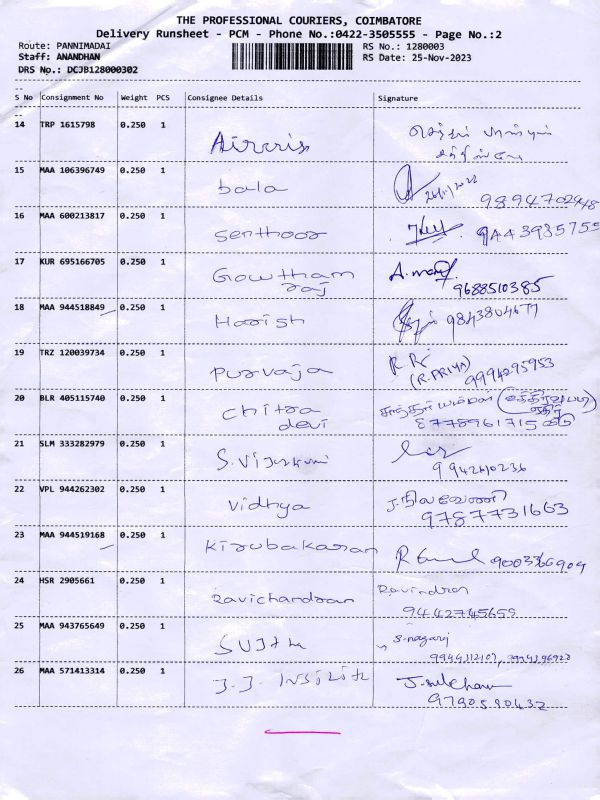 THE PROFESSIONAL COURIERS, COIMBATORE
Delivery Runsheet - PCM - Phone No.:0422-3505555 - Page No.:2
Route: PANNIMADAI RS No.: 1280003
Staff: ANANDHAN RS Date: 25-Nov-2023
DRS No.: DCJB128000302
S No Consignment No Weight PCS Consignee Details Signature
14 TRP 1615798 0.250 1
15 MAA 106396749 0.250 1 bala 9894702448
16 MAA 600213817 0.250 1 Senthoor 9443935755
17 KUR 695166705 0.250 1 Gowtham
raj 9688510385
18 MAA 944518849 0.250 1 Harish 9843804677
19 TRZ 120039734 0.250 1 Purvaja
(R.PRIYA) 9994295953
20 BLR 405115740 0.250 1 Chitra
devi 8778961715
21 SLM 333282979 0.250 1
9942610236
22 VPL 944262302 0.250 1 Vidhya J.நிலவேணி
9787731663
23 MAA 944519168 0.250 1 Kirubakaran 9003366909
24 HSR 2905661 0.250 1 Ravichandran Ravindran
9442745659
25 MAA 943765649 0.250 1 Sujtha S.nagaraj
26 MAA 571413314 0.250 1
9790590432